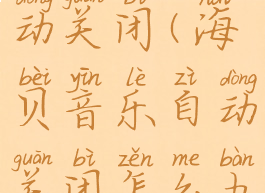 动关闭(海
bèi yīn lè zì dòng
贝音乐自动
guān bì zěn me bàn
关闭怎么办